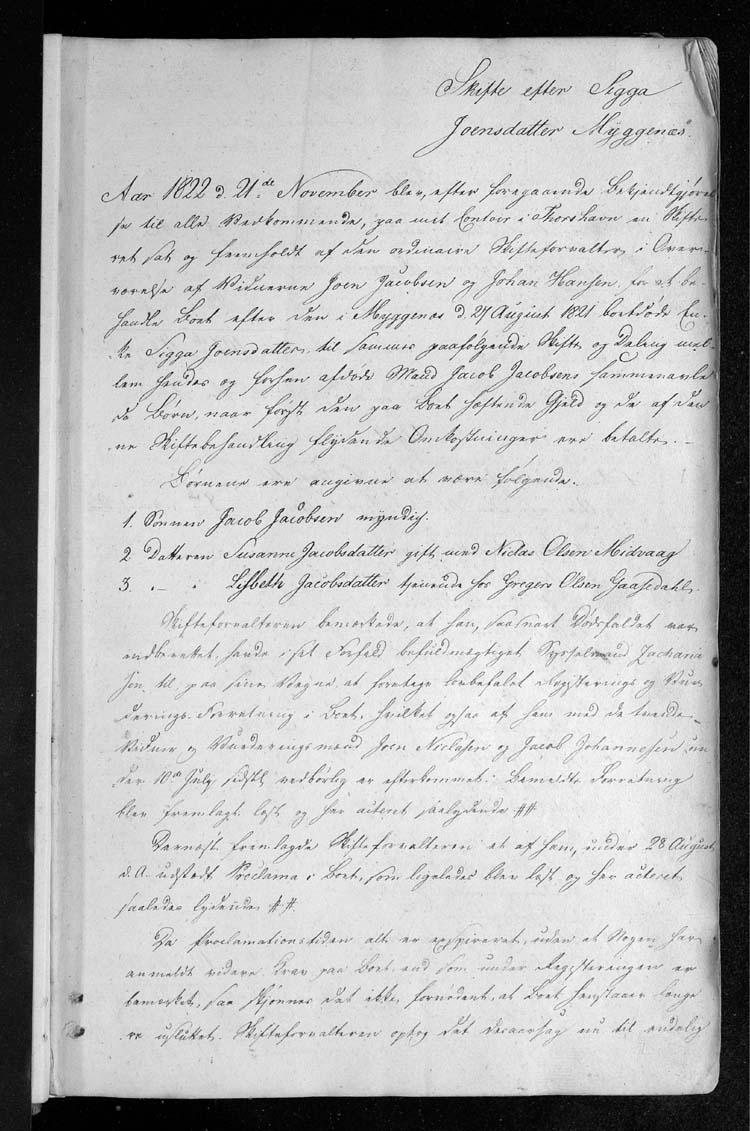 Skifte efter Sigga
Joensdatter Myggenæs.
Aar 1822 d. 21de November blev, efter foregaaende Bekjendtgjørel-
se til alle Vedkommende, paa mit Contoir i Thorshavn en Skifte-
ret sat og fremholdt af den ordinaire Skifteforvalter i Over-
værelse af Vidnerne Joen Jacobsen og Johan Hansen, for at be-
handle Boet efter den i Myggenæs d. 27 August 1821 bortdøde En-
ke Sigga Joensdatter til sammes paafølgende Skifte og Deling mel-
lem hendes og forhen afdøde Mand Jacob Jacobsens sammenavle-
de Børn, naar først den paa Boet hæftende Gjeld og de af den-
ne Skiftebehandling flydende Omkostninger ere betalte. –
Børnene ere angivne at være følgende.
1. Sønnen Jacob Jacobsen myndig.
2 Datteren Susanne Jacobsdatter gift med Niclas Olsen Midvaag
3. – " Lisbeth Jacobsdatter tjenende hos Gregers Olsen Gaasedahl,
Skifteforvalteren bemærkede, at han, saasnart Dødsfaldet var
indberettet, havde i sit Forfald befuldmægtiget Sysselmand Zacharia-
sen til paa sine Vegne at foretage lovbefalet Registerings og Vur-
derings-Forretning i Boet, hvilket ogsaa af ham med de tvende
Vidner og Vurderingsmænd Joen Niclasen og Jacob Johannesen un-
der 10de July sidstl. vedbørlig er efterkommet. Bemeldte Forretning
blev fremlagt læst og her acteret saalydende ##
Dernæst fremlagde Skifteforvalteren et af ham, under 28 August
d. A. udstædt Proclama i Boet, som ligeledes blev læst og her acteret
saaledes lydende ##.
Da Proclamationstiden alt er exspireret, uden at Nogen har
anmeldt videre Krav paa Boet end som under Registeringen er
bemærket, saa skjønnes det ikke fornødent, at Boet henstaaer længe-
re usluttet. Skifteforvalteren optog det desaarsag nu til endelig